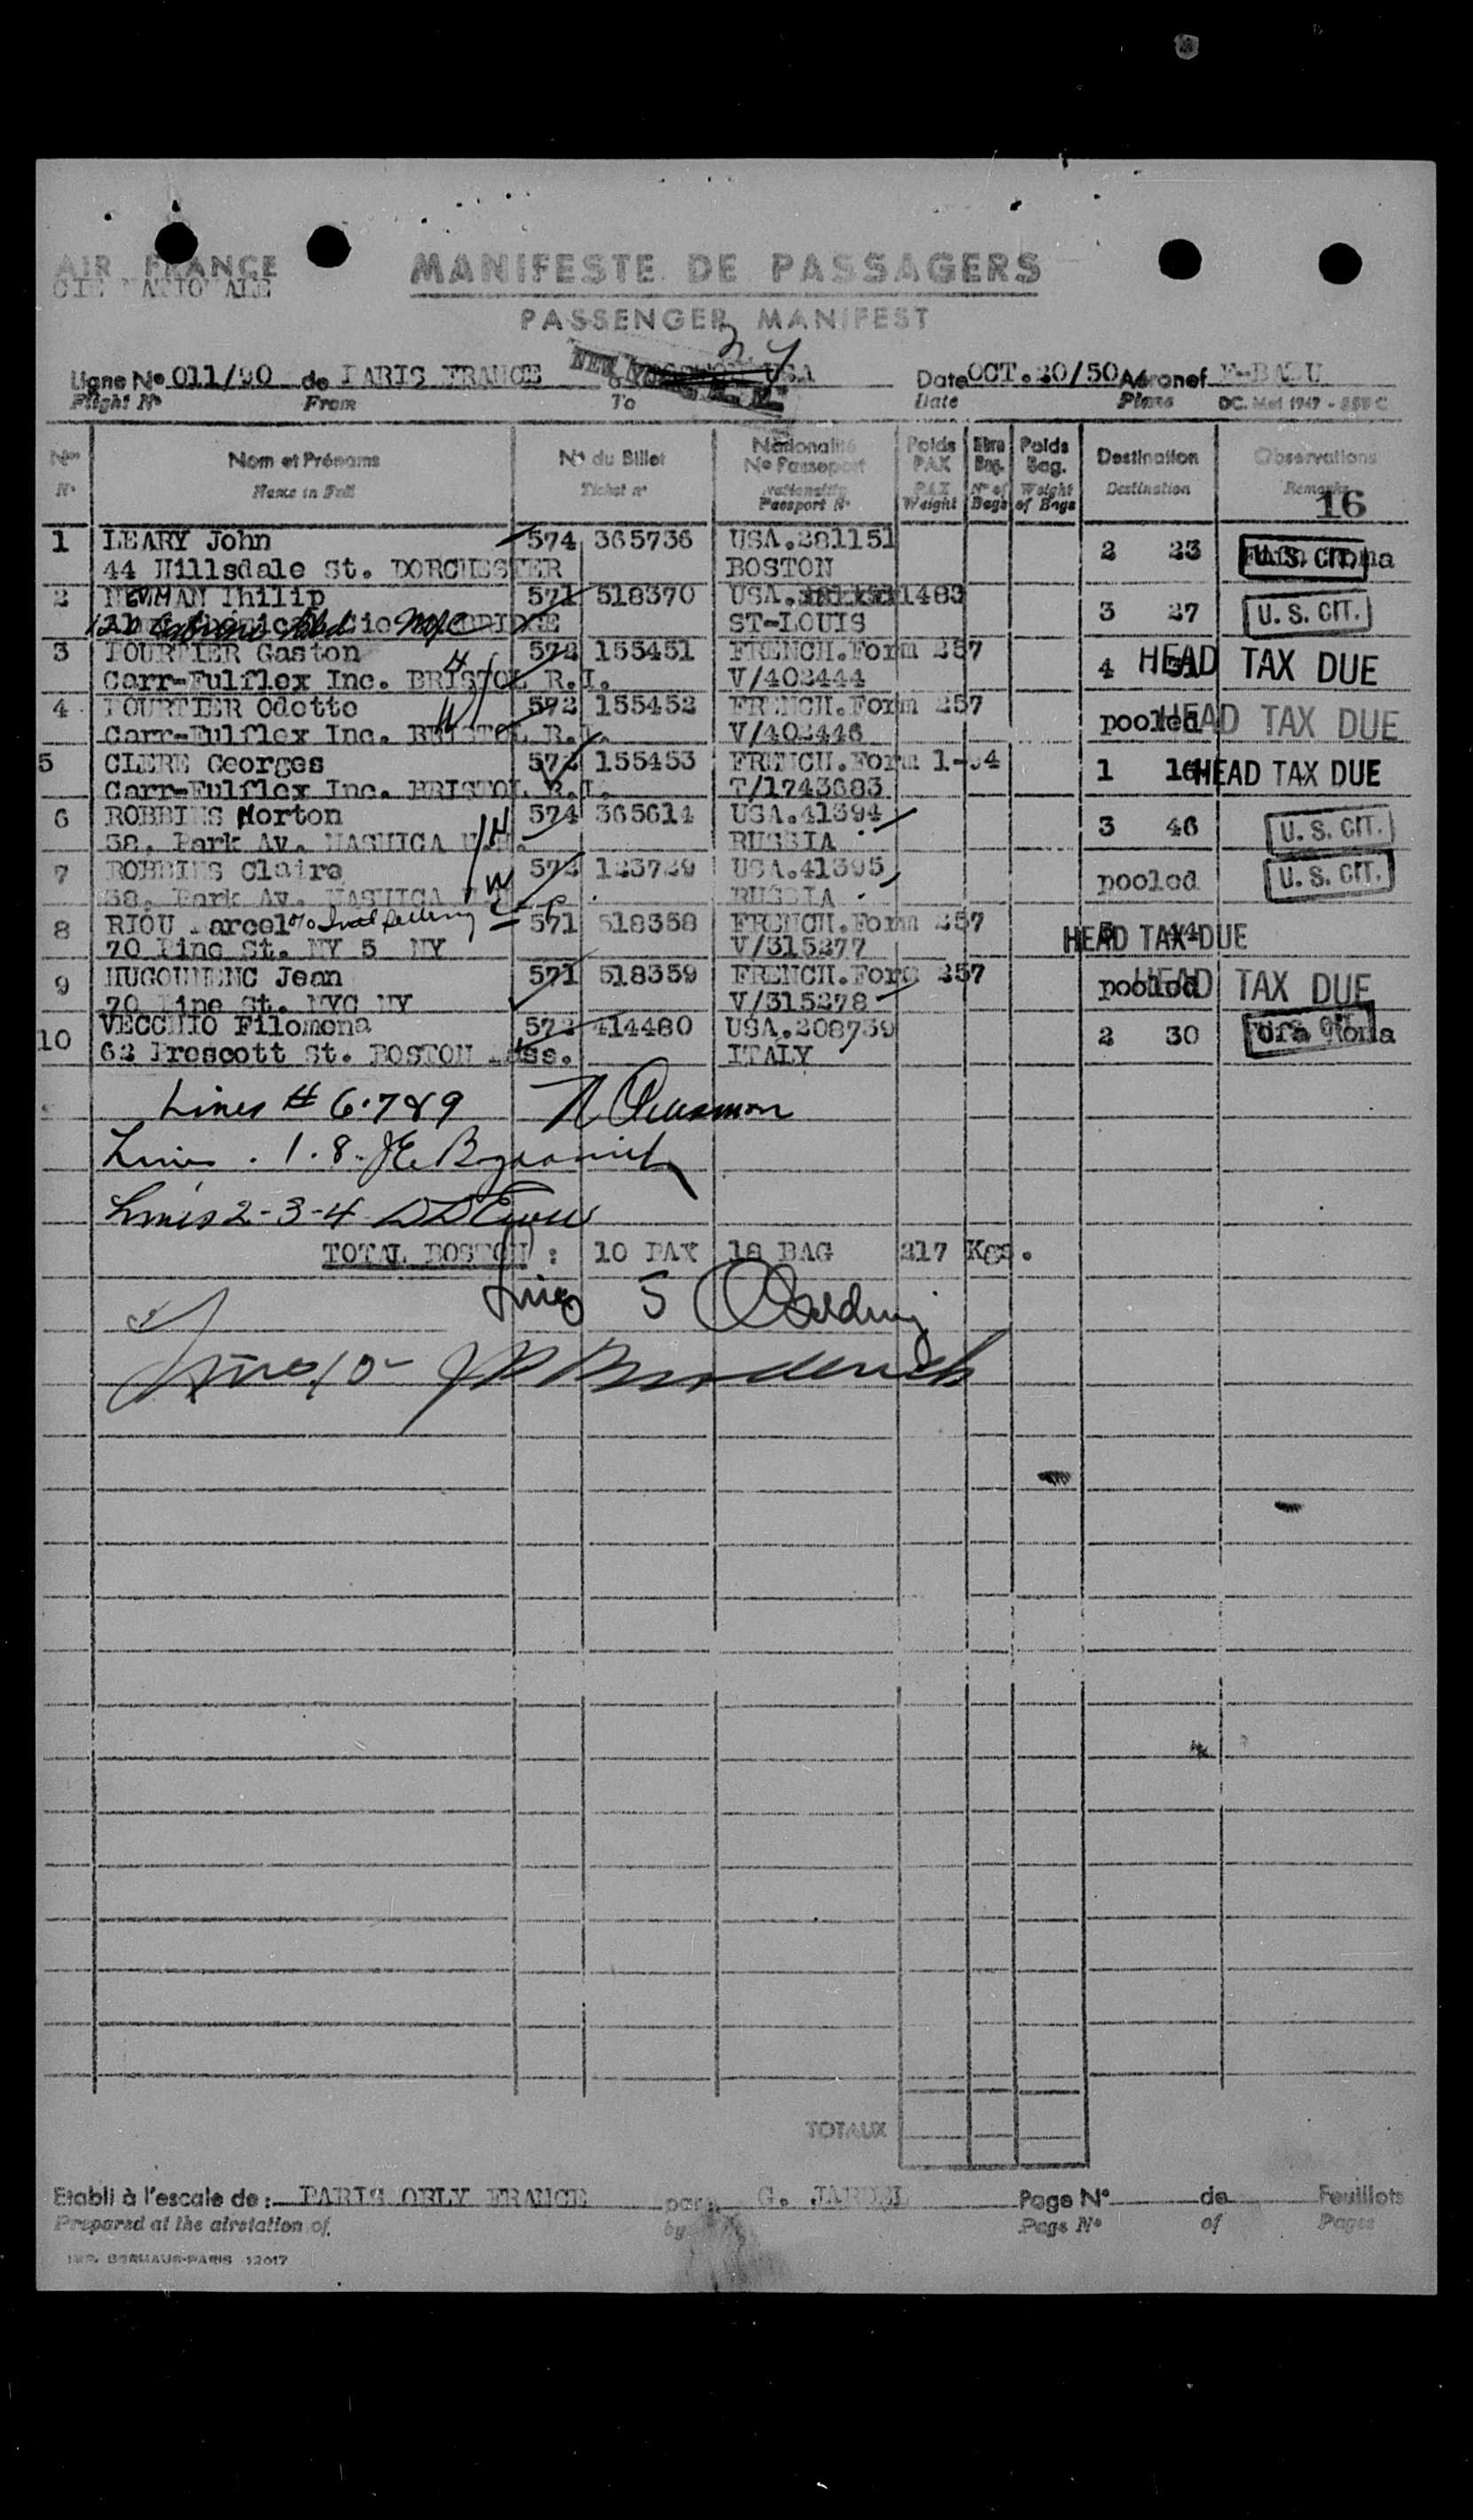 AIR FRANCE
MANIFESTE DE PASSAGERS
PASSENGER MANIFEST
Ligne No 011/90 de PARIS FRANCE à USA Date OCT.20/50 Aéronef
Flight No From To Date Plane
Nos Nom et Prénoms No du Billet Nationalité No Passeport Poids PAX Nbre Bag. Poids Bag. Destination Observations
No Name in Full Ticket no Nationality Passport No PAX Weight No of Bags Weight of Bags Destination Remarks
16
1 LEARY John 574 365736 USA.281151 2 23 U.S. CIT.
44 Hillsdale St. DORCHESTER BOSTON
2 NEWMAN Philip 571 518370 USA. 1483 3 27 U.S. CIT.
ST-LOUIS
3 FOURTIER Gaston 572 155451 FRENCH.Form 257 4 HEAD TAX DUE
Carr-Fulflex Inc. BRISTOL R.I. V/402444
4 FOURTIER Odette 572 155452 FRENCH.Form 257 pooled HEAD TAX DUE
Carr-Fulflex Inc. BRISTOL R.I. V/402446
5 CLERE Georges 572 155453 FRENCH.Form 1 16 HEAD TAX DUE
Carr-Fulflex Inc. BRISTOL R.I. T/1743683
6 ROBBINS Morton 574 365614 USA.41394 3 46 U.S. CIT.
38, Park Av. NASHUCA N.H. RUSSIA
7 ROBBINS Claire 572 123729 USA.41395 pooled U.S. CIT.
38, Park Av. NASHUCA RUSSIA
8 RIOU Marcel 571 518358 FRENCH.Form 257 HEAD TAX DUE
70 Pine St. NY 5 NY V/315277
9 HUGOUNENC Jean 571 518359 FRENCH.Form 257 pooled HEAD TAX DUE
70 Pine St. NYC NY V/315278
10 VECCHIO Filomena 572 414480 USA.208739 2 30
62 Prescott St. BOSTON Mass. ITALY
Lines # 6.7&9
Lines . 1.8.
Lines 2-3-4
TOTAL BOSTON : 10 PAX 18 BAG 217 Kgs.
Line 5
Line 10
TOTAUX
Etabli à l'escale de : PARIS ORLY FRANCE par G. Page No de Feuillets
Prepared at the airstation of by Page No of Pages